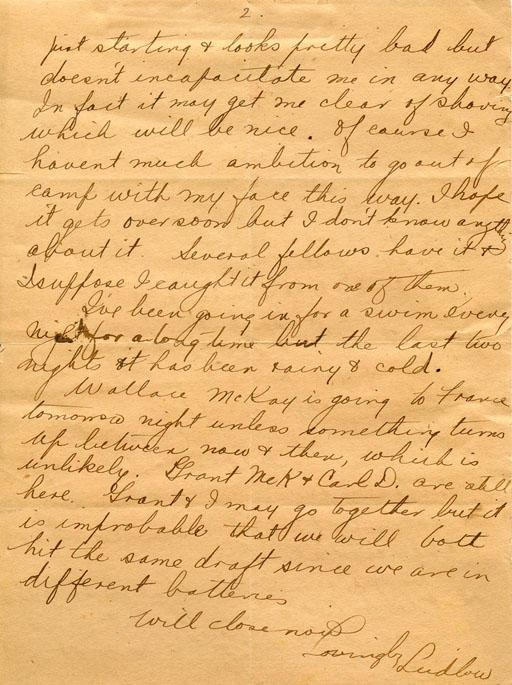 2.
just starting & looks pretty bad but
doesn't incapacitate me in any way.
In fact it may get me clear of shaving
which will be nice. Of course I
havent much ambition to go out of
camp with my face this way. I hope
it gets over soon but I don't know anything
about it. Several fellows have it &
I suppose I caught it from one of them.
I've been going in for a swim every
night for a long time but the last two
nights it has been rainy & cold.
Wallace McKay is going to France
tomorrow night unless something turns
up between now & then, which is
unlikely. Grant McK & Carl D. are still
here. Grant & I may go together but it
is improbable that we will both
hit the same draft since we are in
different batteries
Will close now
Lovingly Ludlow